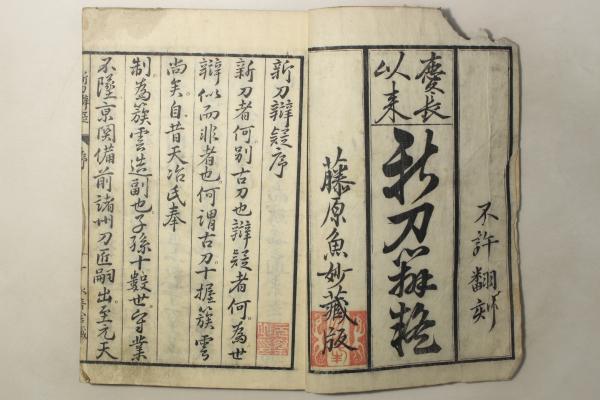 不許翻刻
慶長
以来
新刀辨疑
藤原魚妙藏版
新刀辯疑序
新刀者何別古刀也辯疑者何為世
辯似而非者也何謂古刀十握簇雲
尚矣自昔天冶氏奉
制為簇雲造副也子孫十数世守業
不墜京関備前諸州刀匠嗣出至元天